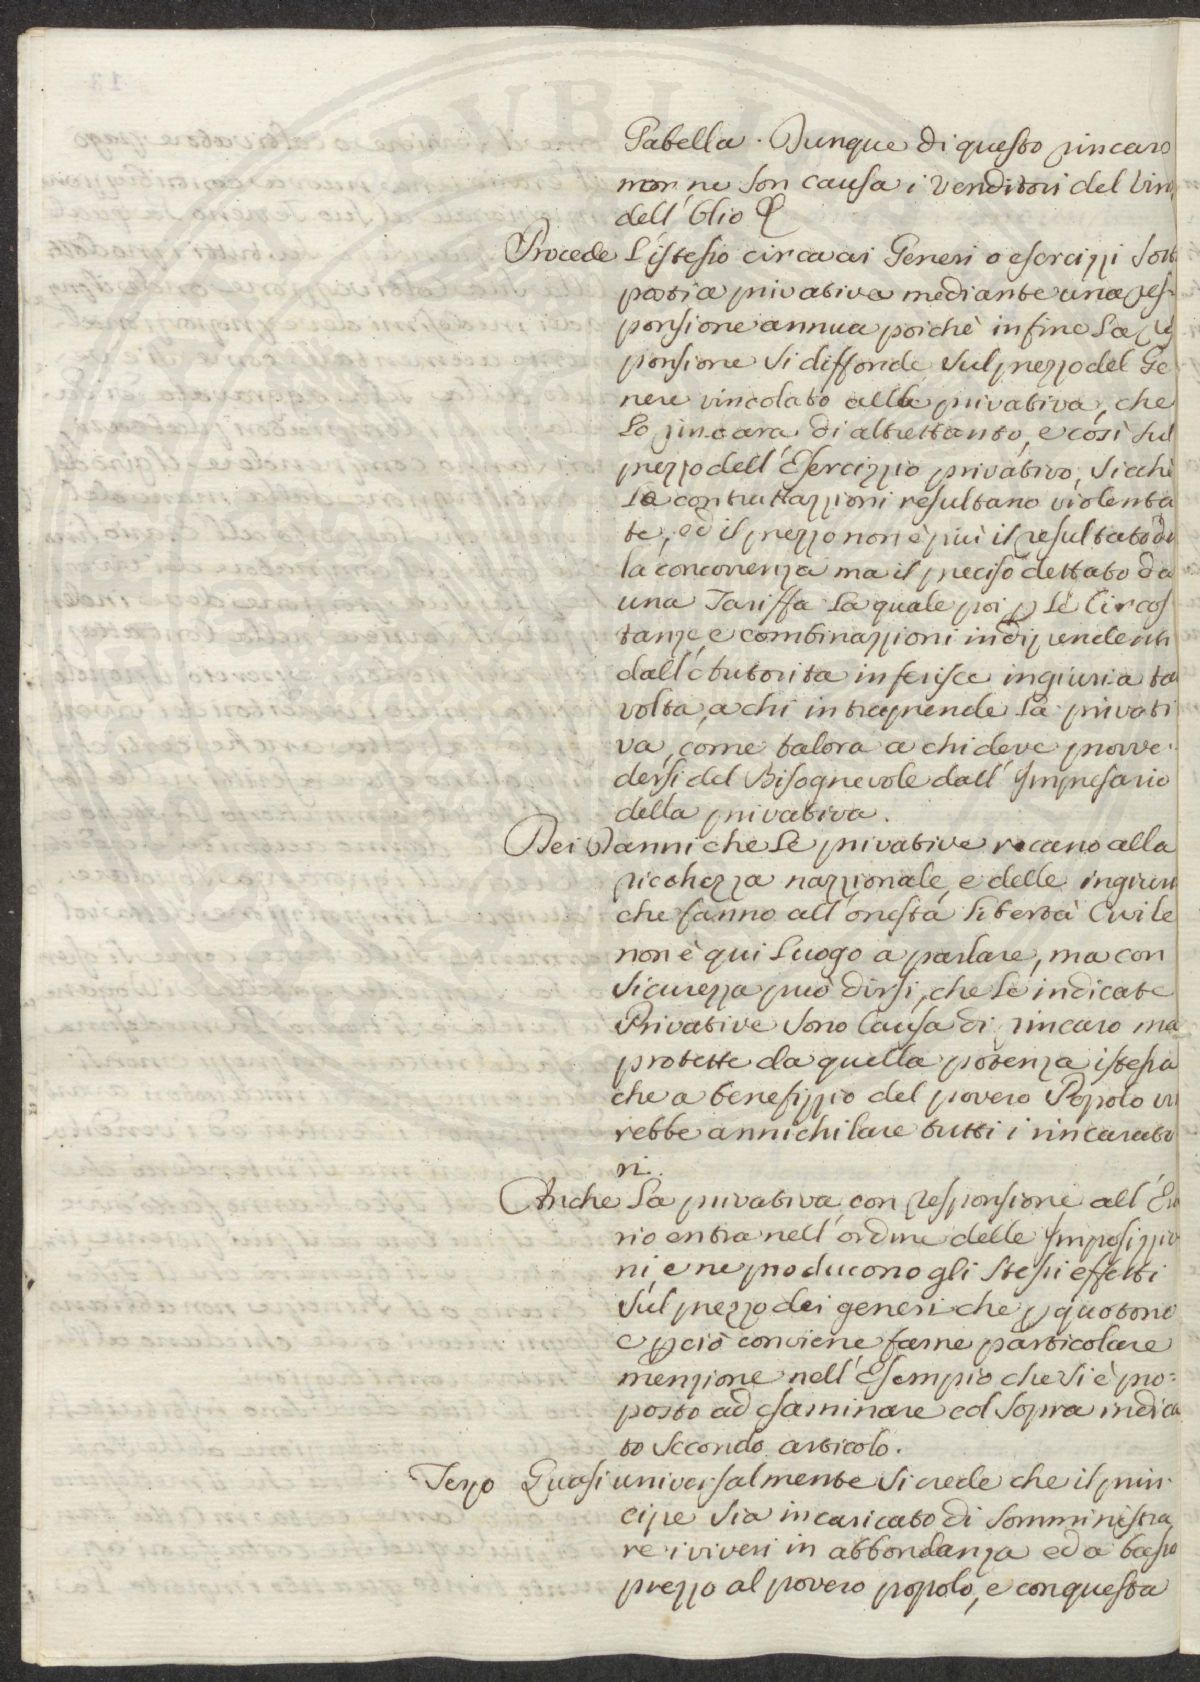 Gabella. Dunque di questo rincaro
non ne son causa i Venditori del Vino
dell'Olio &
Procede l'istesso circa ai Generi o esercizzi sott
posti a privativa mediante una res-
ponsione annua poichè in fine la res
ponsione si diffonde sul prezzo del Ge
nere vincolato alla privativa, che
lo rincara di altrettanto, e così sul
prezzo dell'Esercizzio privativo, sicchè
le contrattazzioni resultano violenta
te, ed il prezzo non è più il resultato de
la concorrenza ma il preciso dettato da
una Tariffa la quale poi p le Circos
tanze e combinazzioni indipendenti
dall'Autorita inferisce ingiuria ta
volta, a chi intraprende la privati
va, come talora a chi deve provve-
dersi del Bisognevole dall'Impresario
della privativa.
Dei Danni che le privative recano alla
ricchezza nazzionale, e delle ingiuri
che fanno all'onestà libertà Civile
non è qui luogo a parlare, ma con
sicurezza può dirsi, che le indicate
Privative sono Causa di rincaro ma
protette da quella potenza istessa
che a benefizzio del povero Popolo vo
rebbe annichilare tutti i rincarato
ri.
Anche la privativa con responsione all'Era
rio entra nell'ordine delle Imposizzio
ni, e ne producono gli stessi effetti
sul prezzo dei generi che p quotono
e pciò conviene farne particolare
menzione nell'Esempio che si è pro-
posto ad esaminare ed sopra indica
to secondo articolo.
Terzo Quasi universalmente si crede che il prin-
cipe sia incaricato di somministra
re i viveri in abbondanza ed a basso
prezzo al povero popolo, e con questa